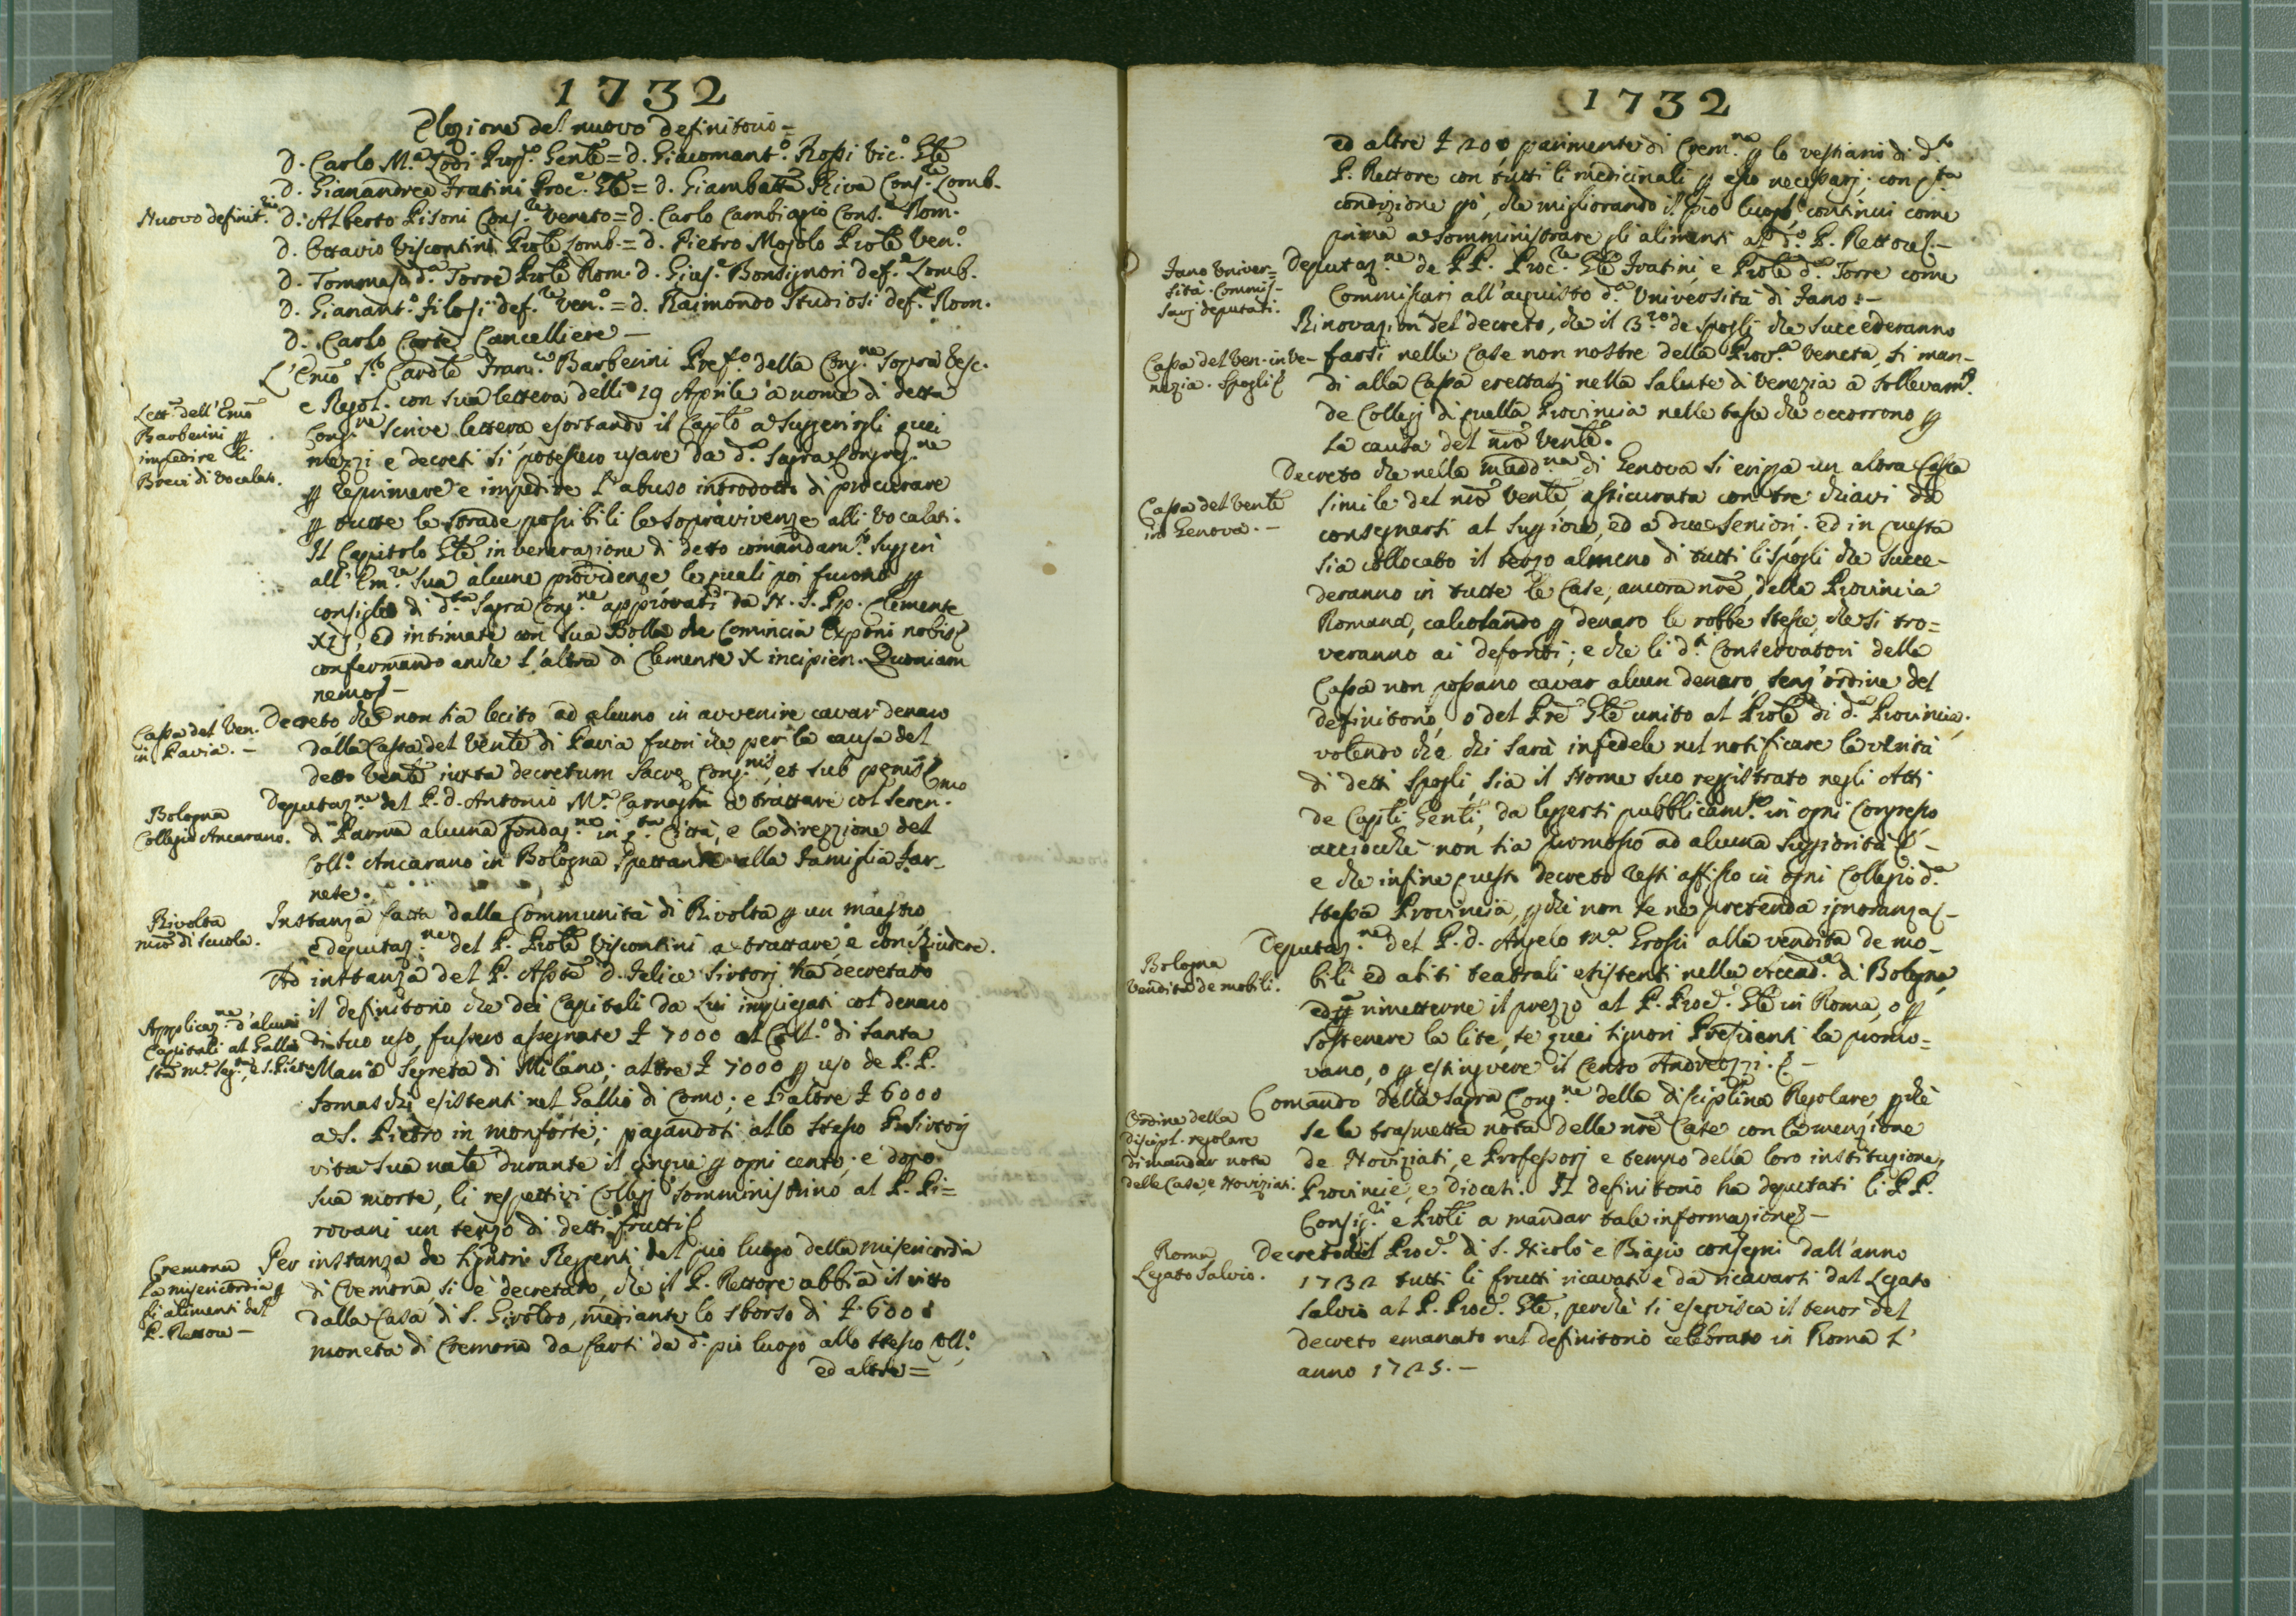 1732
Elezione del nuovo definitorio =
D. Carlo M.ª Lodi Prop.º Gen̄le = D. Giacomant.º Rossi Vic.º G̅le
D. Gianandrea Fratini Proc.e G̅le = D. Giambatt̄a Riva Cons.re Lomb.
Nuovo definit.rio
D. Alberto Pisoni Cons.re Veneto = D. Carlo Cambiagio Cons.e Rom.
D. Ottavio Viscontini Pro̅le Lomb. = D. Pietro Mosolo Pro̅le Ven.º
D. Tommaso d.ª Torre Pro̅le Rom. D. Gius.e Bonsignori def.e Lomb.
D. Gianant.º Filosi def.re Ven.º = D. Raimondo Studiosi def.e Rom.
D. Carlo Corte Cancelliere —
Lett.ª dell'Em̄o
Barberini ꝑ
impedire li
Brevi di vocalato.
L'Em̄o S.r Card̄le Fran.co Barberini Pref.º della Cong.ne sopra Vesc.
e Regol. con sua lettera delli 19 Aprile a nome di detta
Cong.ne scrive lettera esortando il Cap̄lo a suggerirgli quei
mezzi e decreti si potessero usare da d.ª Sagra Congreg.ne
ꝑ reprimere e impedire l'abuso introdotto di procurare
ꝑ tutte le strade possibili le sopravivenze alli vocalati.
Il Capitolo G̅le in venerazione di detto comandam.to suggerì
all'Em.za Sua alcune providenze le quali poi furono ꝑ
consiglio di d.ta Sagra Cong.ne approvati da N. S. Pp. Clemente
XII, ed intimate con sua Bolla che comincia Exponi nobis
confermando anche l'altra di Clemente X incipien. Quoniam
nemo —
Cassa del Ven.
in Pavia. —
Decreto che non sia lecito ad alcuno in avvenire cavar denaro
dalla Cassa del Ven̄le di Pavia fuori che per la causa del
detto Ven̄le iuxta decretum Sacrę Cong.nis, et sub pęnis
Bologna
Collegio Ancarano.
Deputaz.ne del P. D. Antonio M.ª Carnaghi a trattare col Seren.mo
di Parma alcuna fondaz.ne in q.ta Città, e la direzzione del
Coll.º Ancarano in Bologna spettante alla Famiglia Far-
nese.
Rivolta
mr̄o di scuola.
Instanza fatta dalla Communità di Rivolta ꝑ un maestro,
e deputaz.ne del P. Pro̅le Viscontini a trattare, e conchiudere.
Applicaz.ne d'alcuni
Capitali al Gallio
S̄ta M.ª Seg.ta, e S. Pietro
Ad instanza del P. Ass̄te D. Felice Sirtorj ha decretato
il definitorio che dei Capitali da Lui impiegati col denaro
di suo uso, fussero assegnate ₤ 7000 al Coll.º di Santa
Maria Segreta di Milano; altre ₤ 7000 ꝑ uso de P.P.
Somaschi esistenti nel Gallio di Como; e l'altre ₤ 6000
a S. Pietro in Monforte; pagandosi allo stesso P. Sirtorj
vita sua nat̄e durante il cinque ꝑ ogni cento; e dopo
sua morte, li respettivi Collegj somministrino al P. Pi=
rovani un terzo di detti frutti
Cremona
La misericordia ꝑ
li alimenti del
P. Rettore —
Per instanza de Signori Reggenti del pio luogo della Misericordia
di Cremona, si è decretato, che il P. Rettore abbia il vitto
dalla Casa di S. Giroldo, mediante lo sborso di ₤ 600
moneta di Cremona da farsi da d.º pio luogo allo stesso Coll.º,
ed altre =
1732
ed altre ₤ 200 parimente di Crem.na ꝑ lo vestiario di d.to
P. Rettore con tutti li medicinali ꝑ esso necessarj; con q.ta
condizione ꝑò, che migliorando il pio luogo, continui come
prima a somministrare gli alimenti al d.º P. Rettore. —
Fano Univer=
sità. Commis-
sarj deputati.
Deputaz.ne de PP. Proc.re G̅le Fratini, e Pro̅le d.ª Torre come
Commissari all'acquisto d.ª Università di Fano: —
Cassa del Ven. in Ve-
nezia. Spogli
Rinovazion del decreto, che il 3.zo de Spogli che succederanno
farsi nelle Case non nostre della Prov.ª Veneta, si man-
di alla Cassa erettasi nella Salute di Venezia a sollevam.to
de Collegj di quella Provincia nelle tasse che occorrono ꝑ
la causa del nr̄o Ven̄le.
Cassa del Ven̄le
in Genova. —
Decreto che nella Madd.na di Genova si eriga un altra Cassa
simile del nr̄o Ven̄le, assicurata con tre chiavi da
consegnarsi al Suꝑiore, ed a due Seniori. ed in questa
sia collocato il terzo almeno di tutti li spogli che succe-
deranno in tutte le Case, ancora nr̄e, della Provincia
Romana, calcolando ꝑ denaro le robbe stesse, che si tro=
veranno ai defonti; e che li d.ti Conservatori della
Cassa non possano cavar alcun denaro senz'ordine del
definitorio, o del Pr̄e G̅le unito al Pro̅le di d.ª Provincia.
volendo che chi sarà infedele nel notificare la verità
di detti Spogli, sia il Nome suo registrato negli Atti
de Cap̄li Gen̄li, da leggersi pubblicam.te in ogni Congresso
acciocchè non sia promosso ad alcuna suꝑiorità —
e che infine questo decreto resti affisso in ogni Collegio d.ª
stessa Provincia, ꝑchè non se ne pretenda ignoranza —
Bologna
Vendita de mobili.
Deputaz.ne del P. D. Angelo M.ª Grossi alla vendita de mo-
bili ed abiti teatrali esistenti nella Accad.ª di Bologna,
ed ꝑ rimetterne il prezzo al P. Proc.e G̅le in Roma, o ꝑ
sostenere la lite, se quei Signori Presidenti la promo=
vano, o ꝑ estinguere il Censo Andreozzi. —
Ordine della
discipl. regolare
di mandar nota
delle Case, e Noviziati.
Comando della Sagra Cong.ne della disciplina Regolare, ꝑchè
se le trasmetta nota delle nr̄e Case con la menzione
de Noviziati, e Professorj e tempo della loro instituzione,
Provincie, e Diocesi. Il definitorio ha deputati li PP.
Consig.ri e Pro̅li a mandar tale informazione —
Roma
Legato Salvio.
Decreto che il Proc.e di S. Nicolò e Biagio consegni dall'anno
1732 tutti li frutti ricavati e da ricavarsi dal Legato
Salvio al P. Proc.e G̅le, perchè si eseguisca il tenor del
decreto emanato nel definitorio celebrato in Roma l'
anno 1725. —